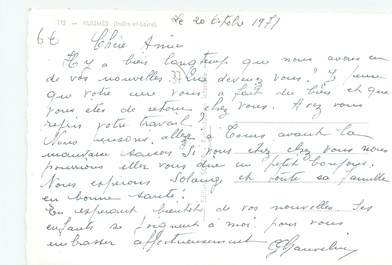 112 - HUISMES (Indre-et-Loire)
Le 20 Octobre 1971
Chère Amie
Il y a bien longtemps que nous avons eu
de vos nouvelles. Que devenez vous ? Je pense
que votre cure vous a fait du bien et que
vous êtes de retour chez vous. Avez vous
repris votre travail ?
Nous pensons aller à Tours avant la
mauvaise saison. Si vous étiez chez vous nous
pourrions aller vous dire un petit bonjour.
Nous espérons Solange et toute sa famille
en bonne santé.
En espérant bientôt de vos nouvelles. Les
enfants se joignent à moi pour vous
embrasser affectueusement